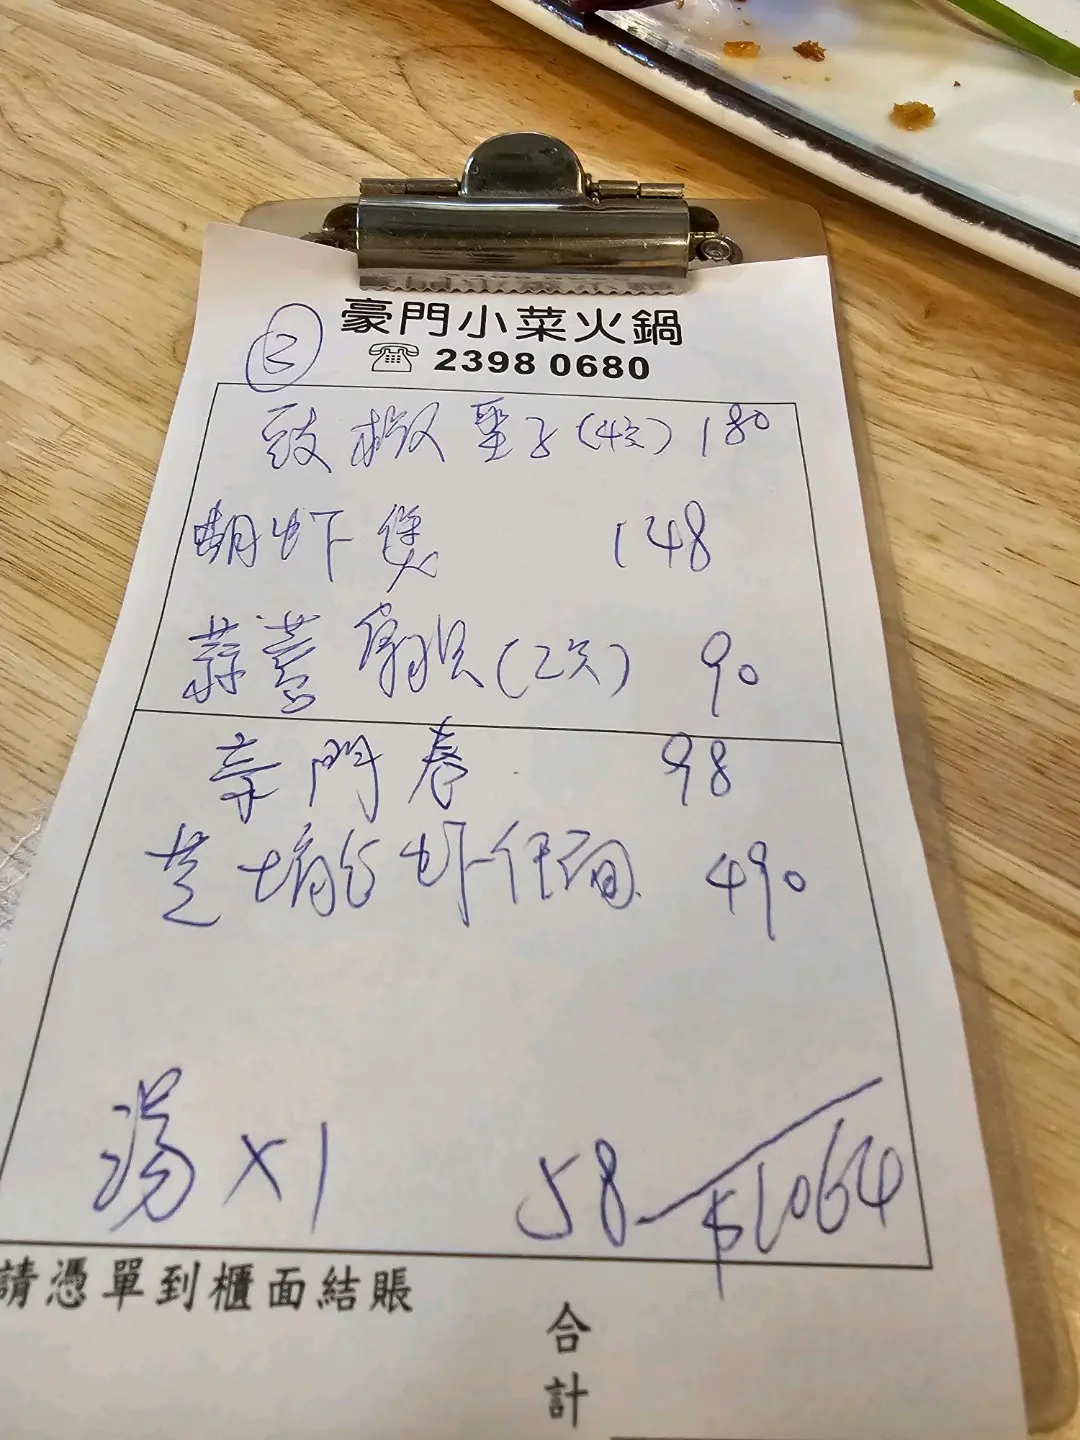 豪門小菜火鍋
☏ 2398 0680
豉椒聖子(4只) 180
虾煲 148
蒜蓉扇貝(2只) 90
豪門卷 98
芝士焗虾伊面 490
湯 x1 58 $1064
請憑單到櫃面結賬
合計